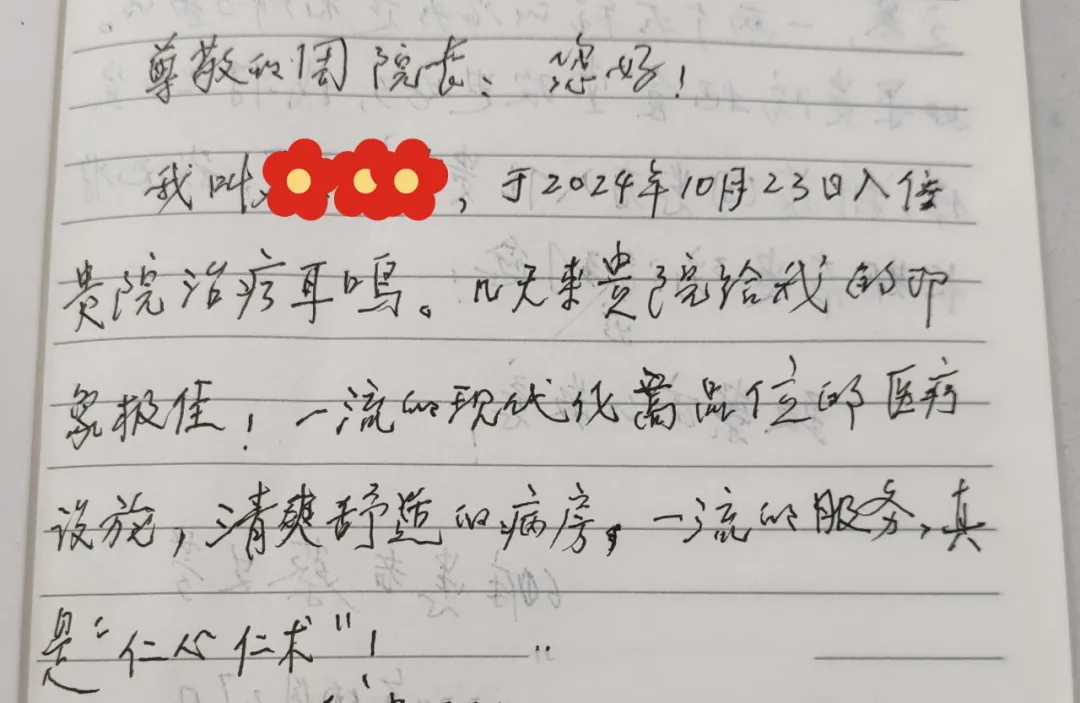 尊敬的周院长：您好！
我叫，于2024年10月23日入住
贵院治疗耳鸣。几天来贵院给我的印
象极佳！一流的现代化高品位的医疗
设施，清爽舒适的病房，一流的服务，真
是“仁心仁术”！